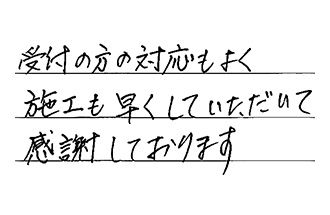 受付の方の対応もよく
施工も早くしていただいて
感謝しております